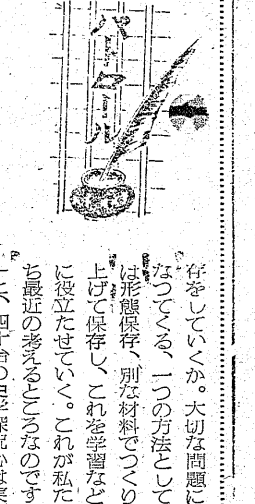 パトロール
存をしていくか。大切な問題に
なつてくる、一つの方法として
は形態保存、別な材料でつくり
上げて保存し、これを学習など
に役立たせていく。これが私た
ち最近の考えるところなのです